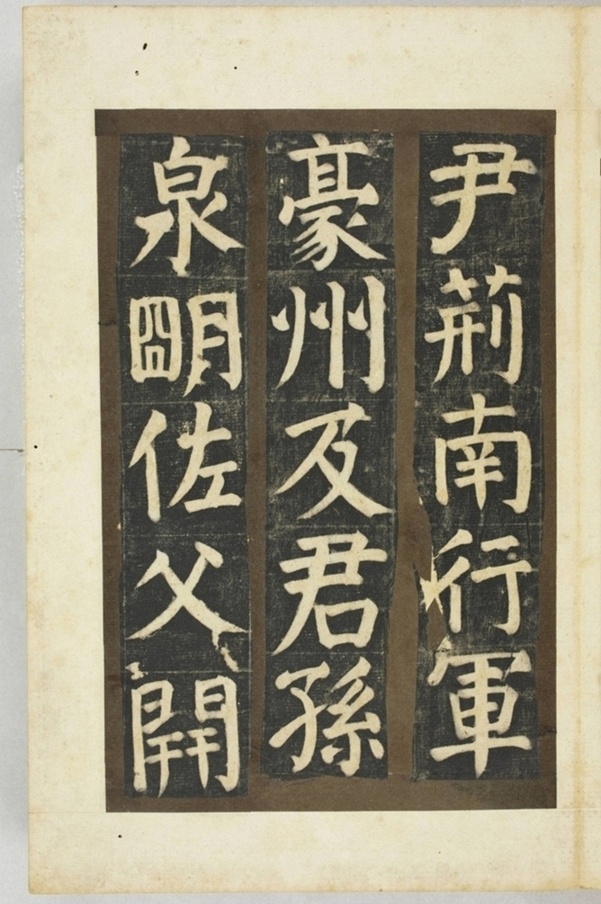 尹荆南行軍
豪州及君孫
泉朙佐父開